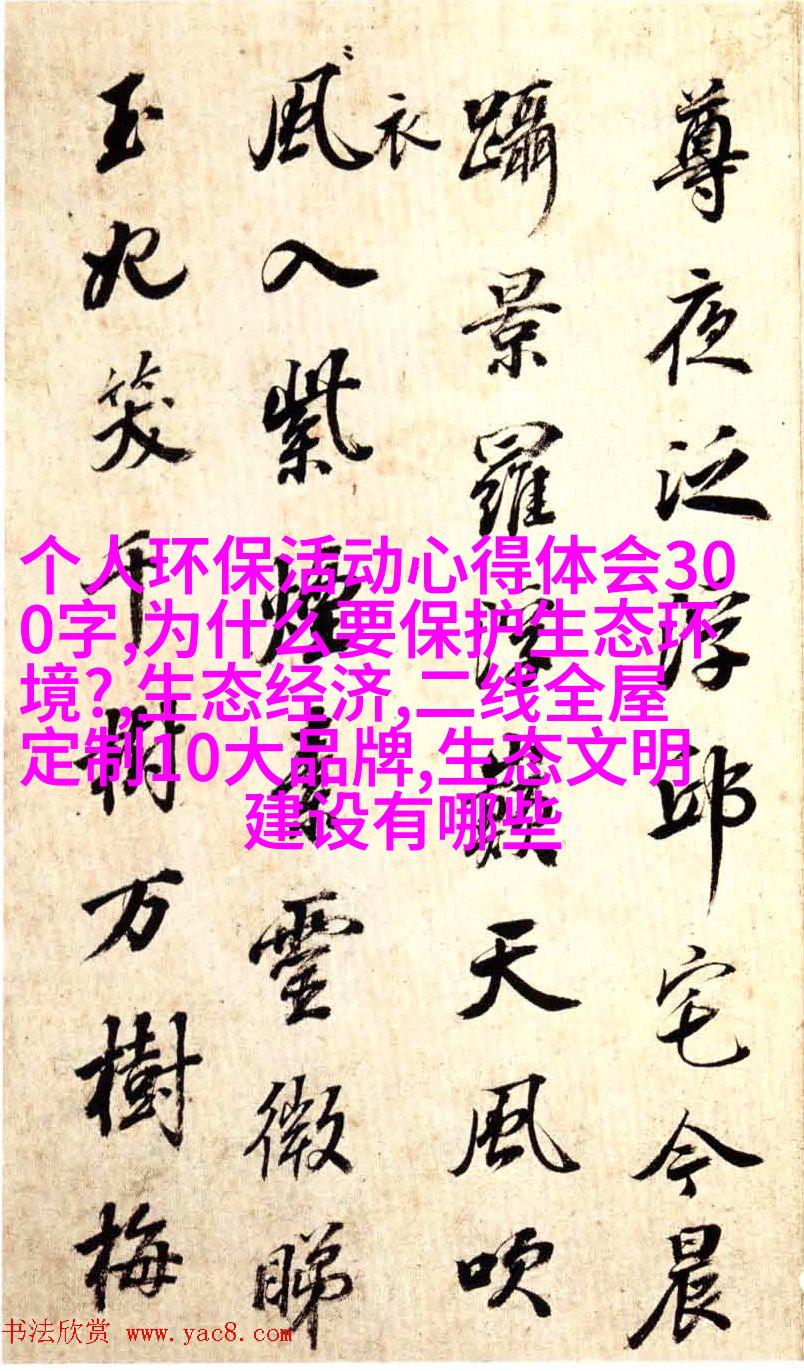 尊夜泛浮邱宅今晨
躡景羅浮巔天風吹
衣
風入紫煙素靈微睇
玉妃笑千樹万樹梅
个人环保活动心得体会30
0字,为什么要保护生态环
境?,生态经济,二线全屋
定制10大品牌,生态文明
建设有哪些
书法欣赏 www.yac8.com